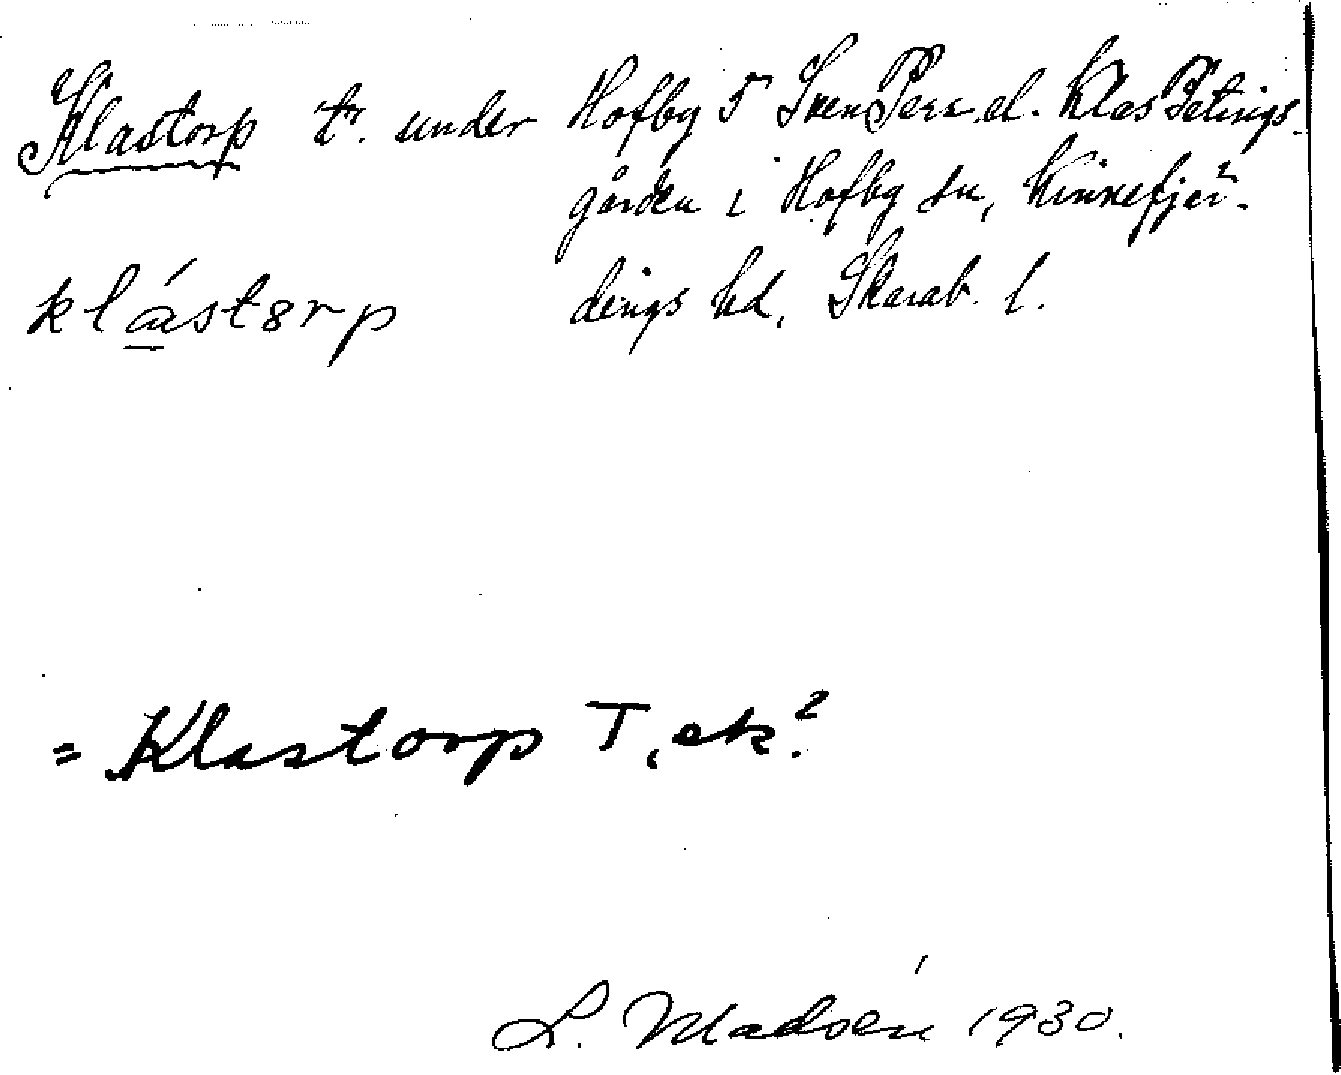 Klastorp tr. under Hofby 5 Sven Pers el. Klas Petings-
gården i Hofby sn, Kinnefjer-
klástorp dings hd, Skarab. l.
= Klastorp T, ek.?
L. Madsén 1930.